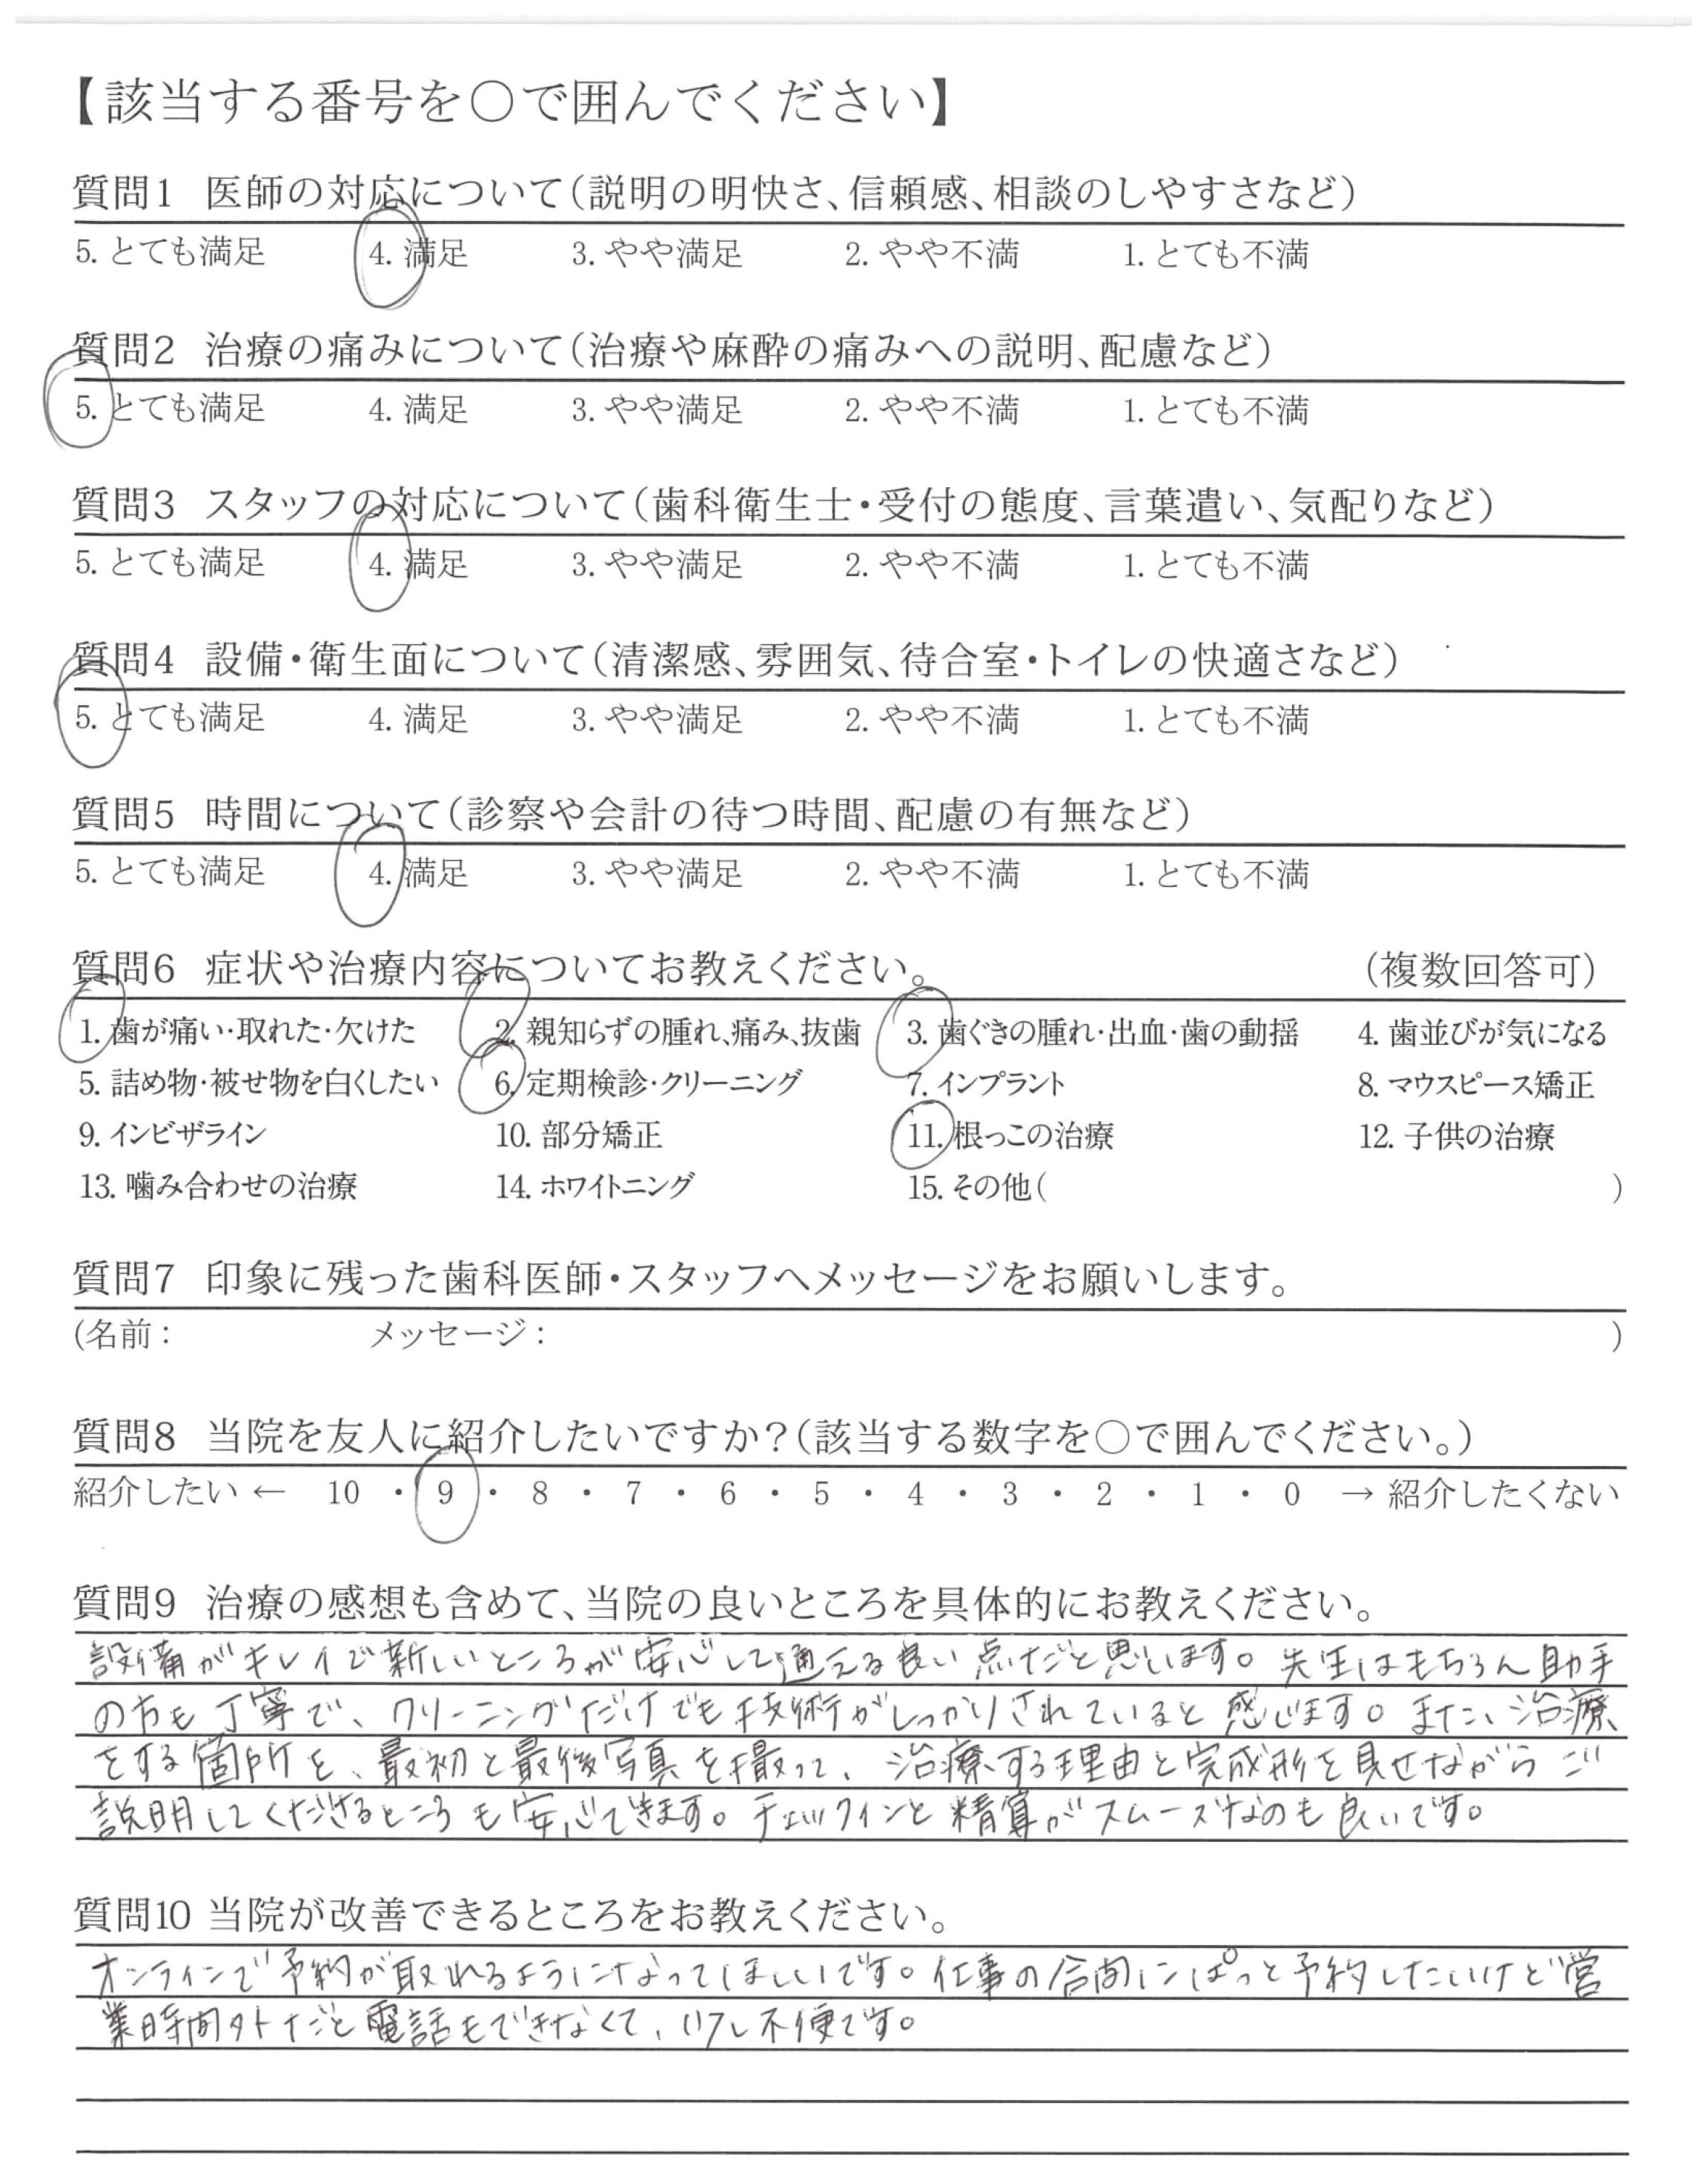 【該当する番号を○で囲んでください】
質問1 医師の対応について(説明の明快さ、信頼感、相談のしやすさなど)
5. とても満足 4. 満足 3. やや満足 2. やや不満 1. とても不満
質問2 治療の痛みについて(治療や麻酔の痛みへの説明、配慮など)
5. とても満足 4. 満足 3. やや満足 2. やや不満 1. とても不満
質問3 スタッフの対応について(歯科衛生士・受付の態度、言葉遣い、気配りなど)
5. とても満足 4. 満足 3. やや満足 2. やや不満 1. とても不満
質問4 設備・衛生面について(清潔感、雰囲気、待合室・トイレの快適さなど)
5. とても満足 4. 満足 3. やや満足 2. やや不満 1. とても不満
質問5 時間について(診察や会計の待つ時間、配慮の有無など)
5. とても満足 4. 満足 3. やや満足 2. やや不満 1. とても不満
質問6 症状や治療内容についてお教えください。 (複数回答可)
1. 歯が痛い・取れた・欠けた 2. 親知らずの腫れ、痛み、抜歯 3. 歯ぐきの腫れ・出血・歯の動揺 4. 歯並びが気になる
5. 詰め物・被せ物を白くしたい 6. 定期検診・クリーニング 7. インプラント 8. マウスピース矯正
9. インビザライン 10. 部分矯正 11. 根っこの治療 12. 子供の治療
13. 噛み合わせの治療 14. ホワイトニング 15. その他( )
質問7 印象に残った歯科医師・スタッフへメッセージをお願いします。
(名前: メッセージ: )
質問8 当院を友人に紹介したいですか?(該当する数字を○で囲んでください。)
紹介したい ← 10 ・ 9 ・ 8 ・ 7 ・ 6 ・ 5 ・ 4 ・ 3 ・ 2 ・ 1 ・ 0 → 紹介したくない
質問9 治療の感想も含めて、当院の良いところを具体的にお教えください。
設備がキレイで新しいところが安心して通える良い点だと思います。先生はもちろん助手
の方も丁寧で、クリーニングだけでも技術がしっかりされていると感じます。また、治療
をする箇所を、最初と最後写真を撮って、治療する理由と完成形を見せながらご
説明してくださるところも安心できます。チェックインと精算がスムーズなのも良いです。
質問10 当院が改善できるところをお教えください。
オンラインで予約が取れるようになってほしいです。仕事の合間にぱっと予約したいけど営
業時間外だと電話もできなくて、少し不便です。